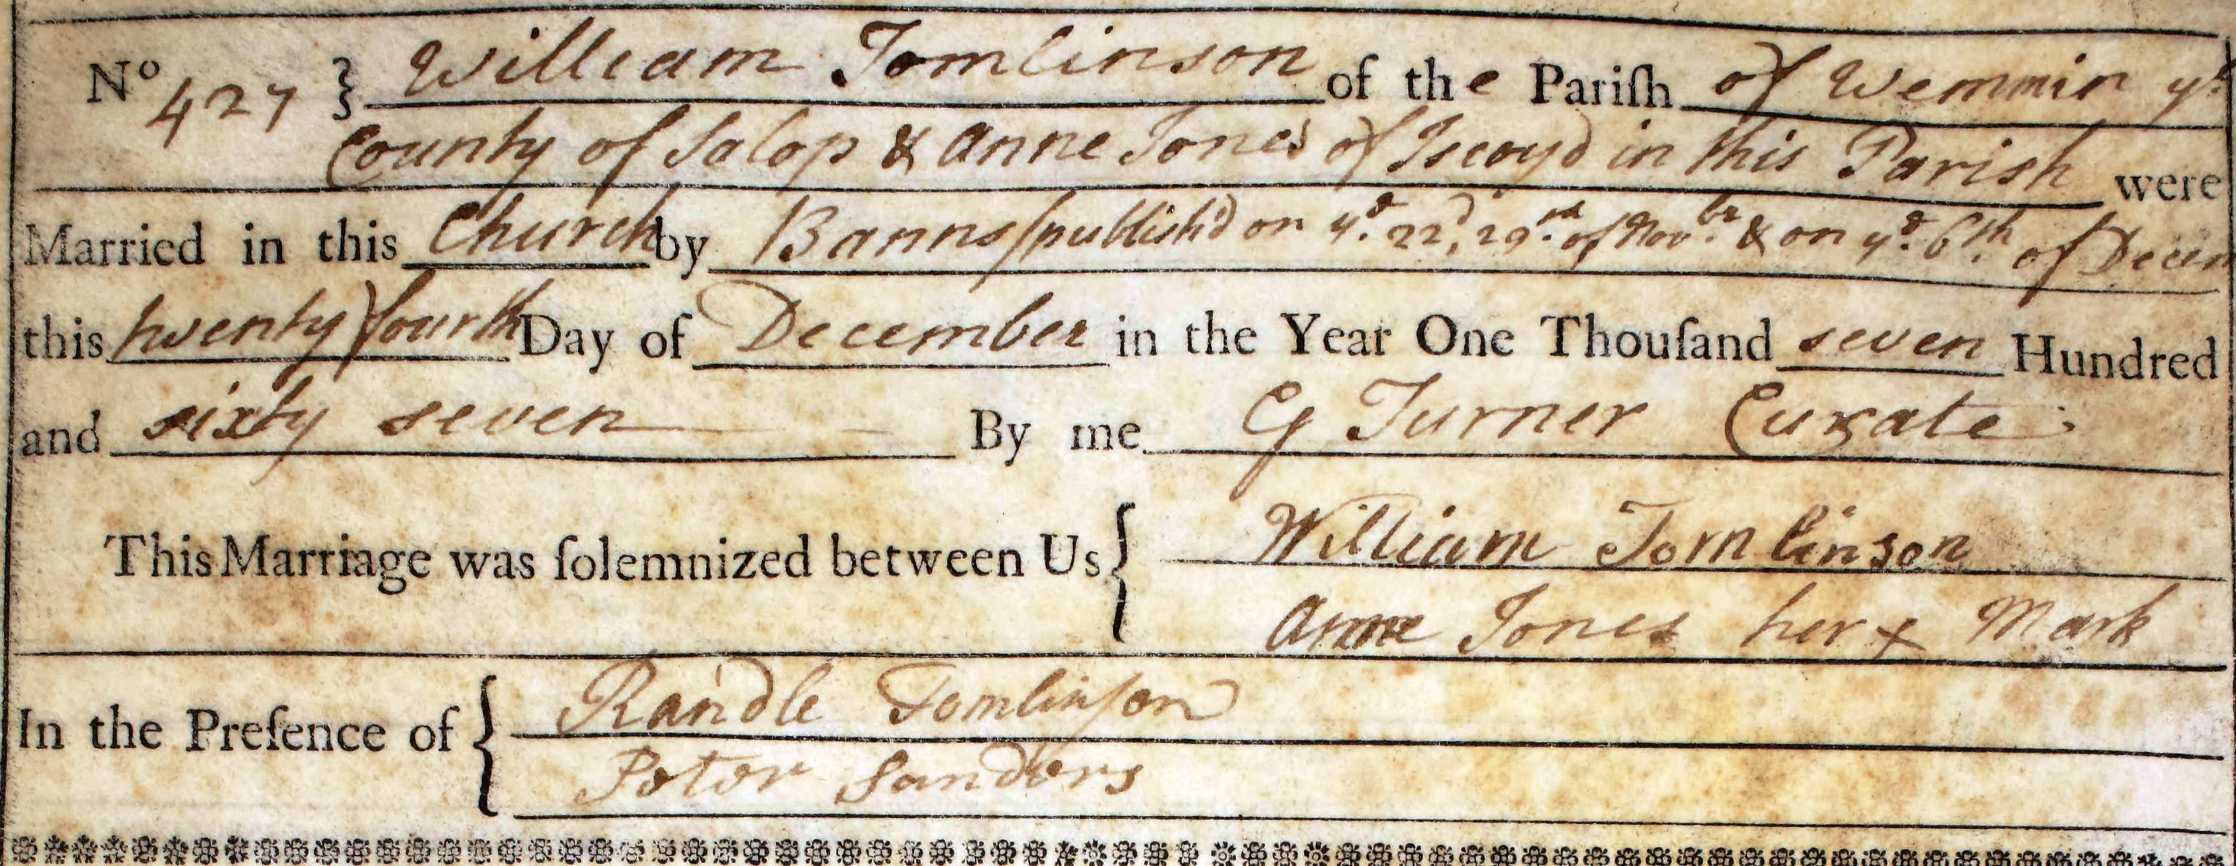 No 427 } William Tomlinson of the Pariſh of Wem in ye
County of Salop & Anne Jones of Iscoyd in this Parish were
Married in this Church by Banns publish'd on ye 22d, 29th of Novbr & on ye 6th of Decem
this twenty fourth Day of December in the Year One Thouſand seven Hundred
and sixty seven By me G Turner Curate
This Marriage was ſolemnized between Us { William Tomlinson
Anne Jones her x Mark
In the Preſence of { Randle Tomlinſon
Peter Sanders